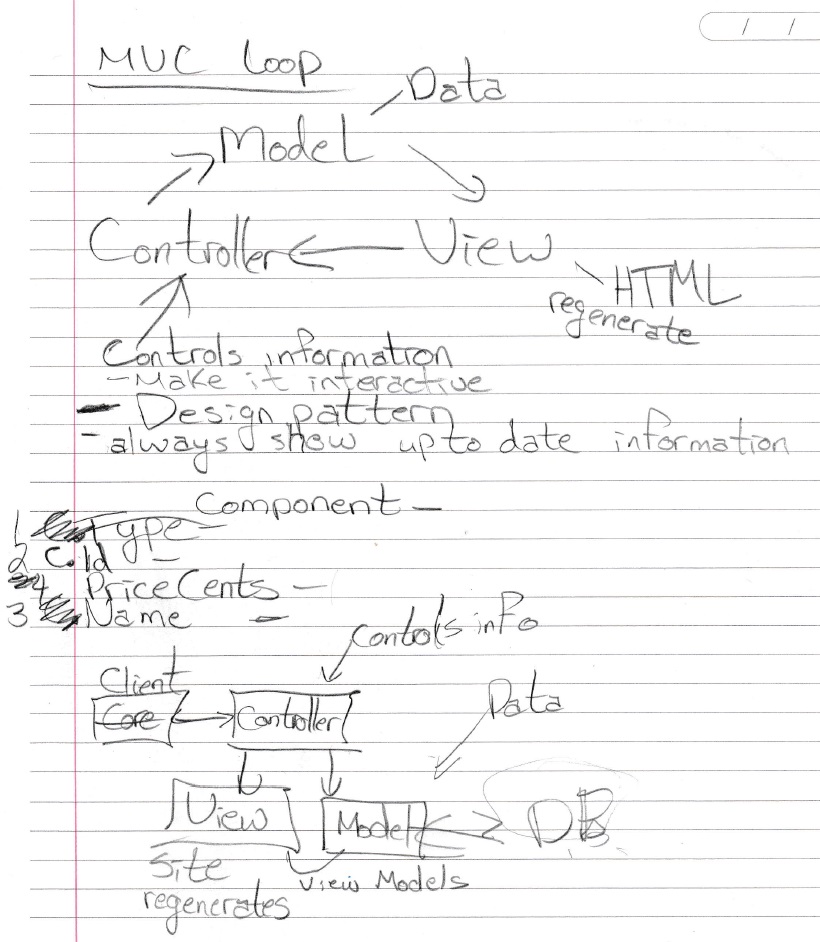 MVC Loop
Data
Model
Controller
View
HTML
regenerate
Controls information
-Make it interactive
- Design pattern
- always show up to date information
Component -
1 Type -
2 C.Id -
4 PriceCents -
3 Name -
Controls info
Client
Core
Controller
Data
View
Model
DB
Site
regenerates
View Models